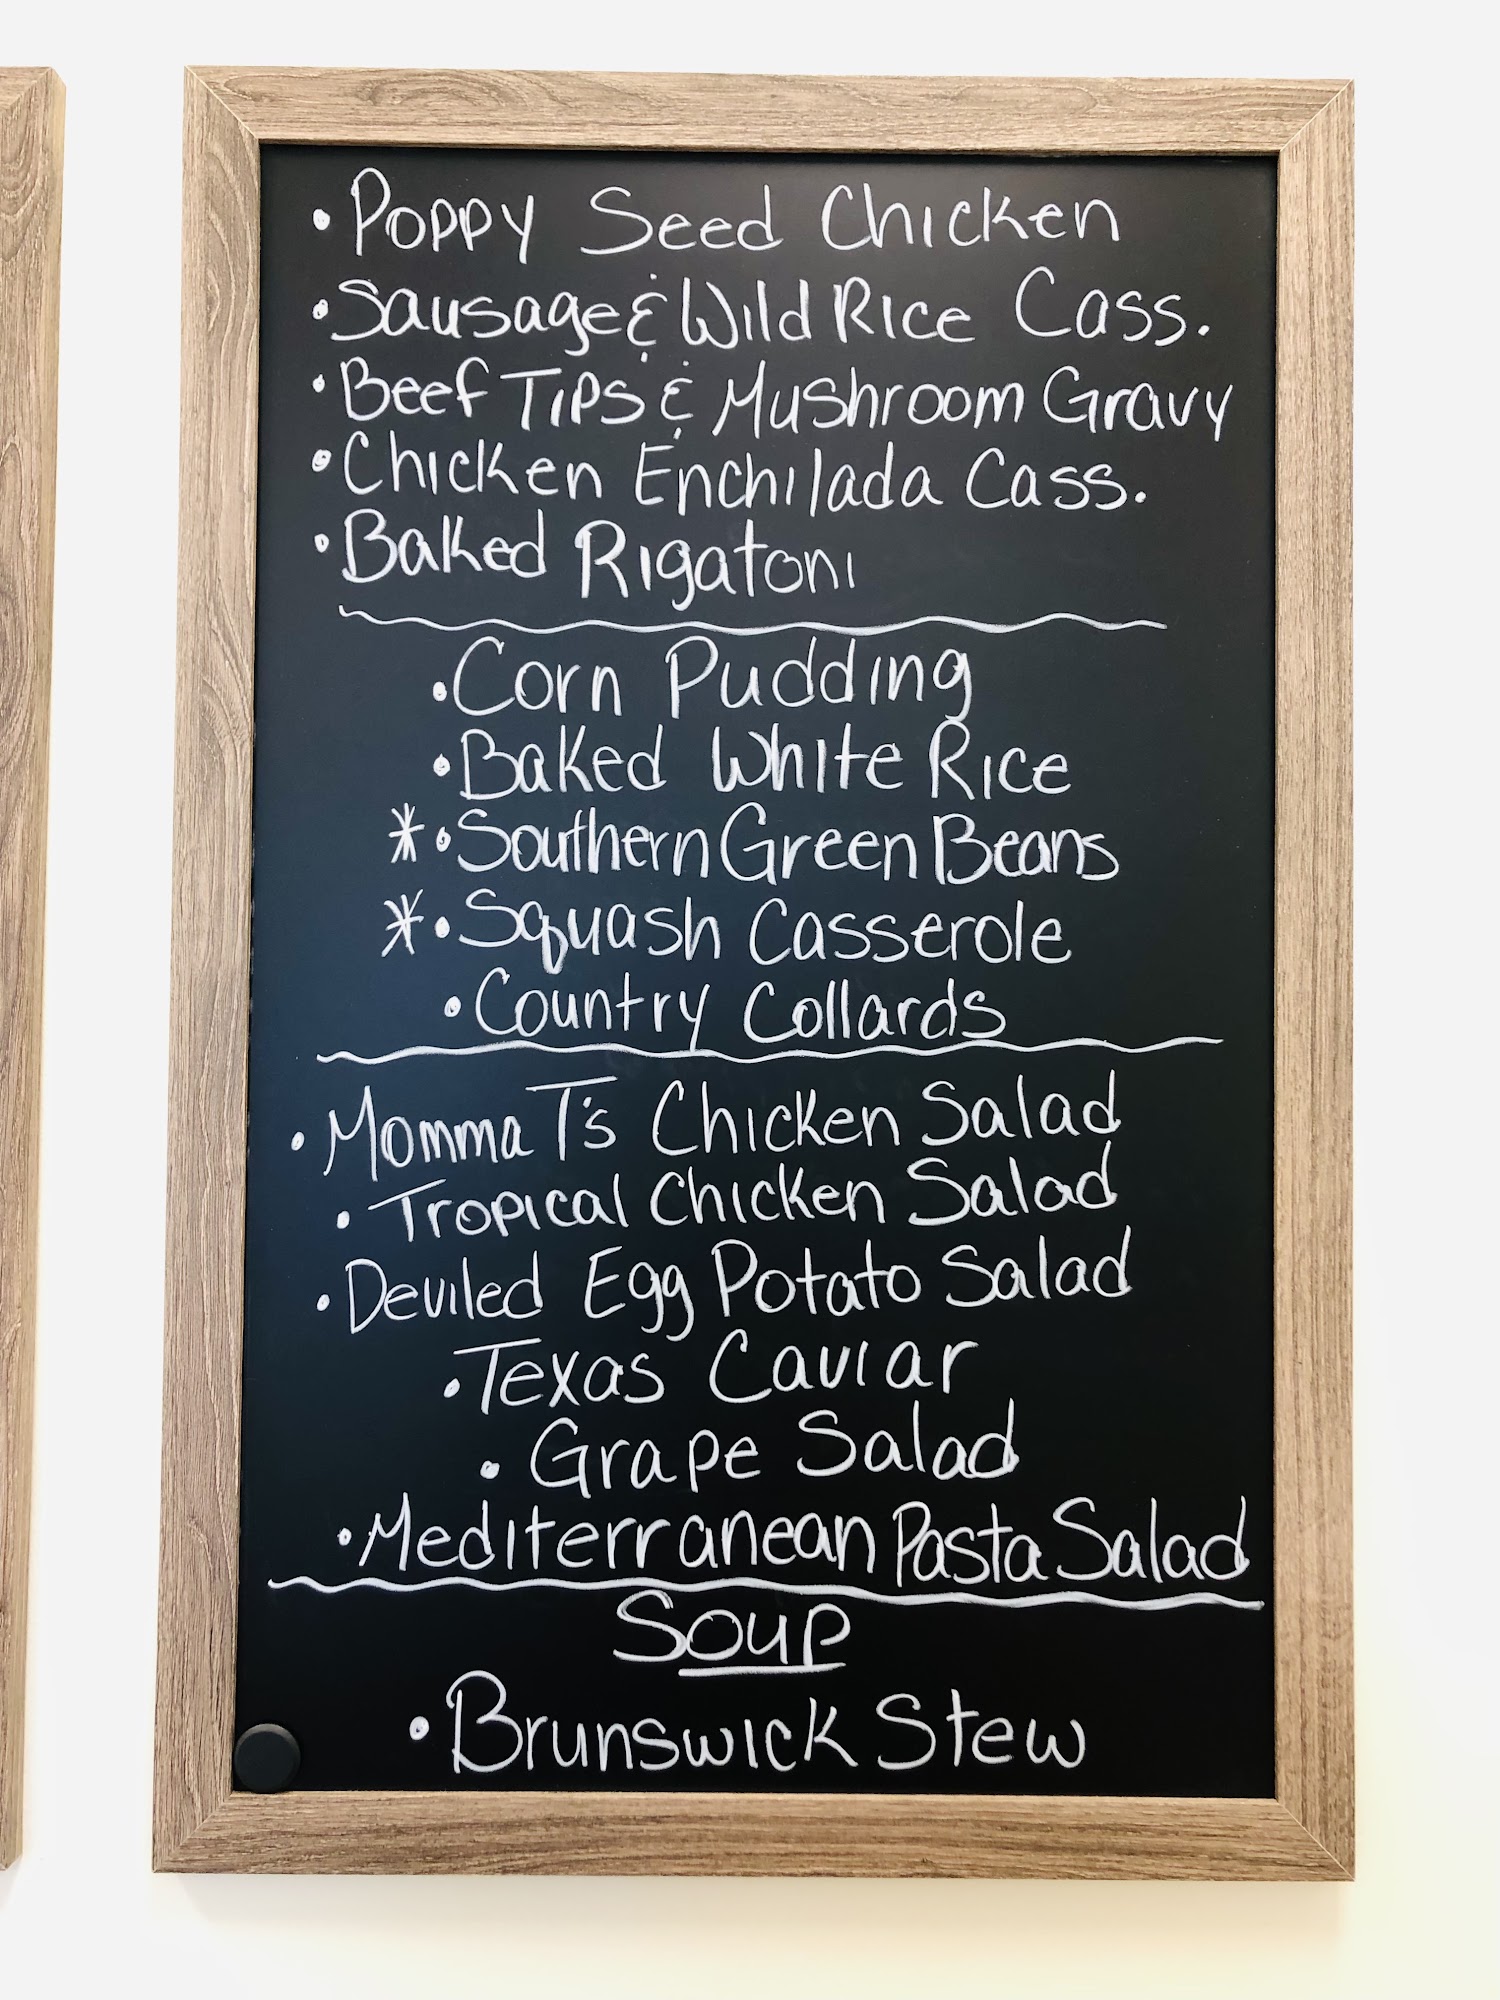 • Poppy Seed Chicken
• Sausage & Wild Rice Cass.
• Beef Tips & Mushroom Gravy
• Chicken Enchilada Cass.
• Baked Rigatoni
• Corn Pudding
• Baked White Rice
* • Southern Green Beans
* • Squash Casserole
• Country Collards
• Momma T's Chicken Salad
• Tropical Chicken Salad
• Deviled Egg Potato Salad
• Texas Caviar
• Grape Salad
• Mediterranean Pasta Salad
Soup
• Brunswick Stew